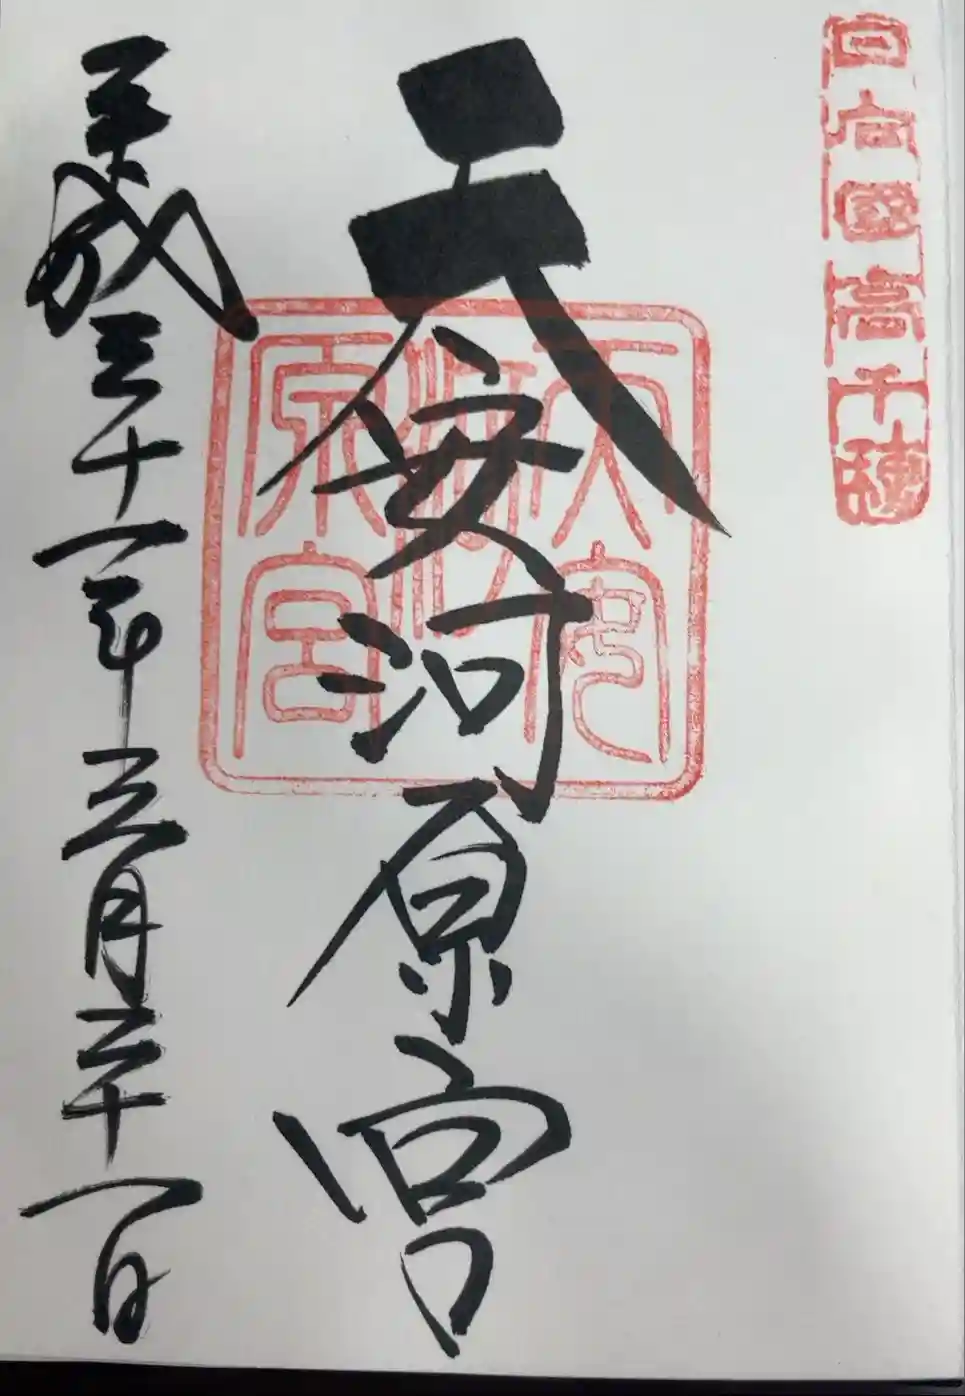 日向國高千穂
天安河原宮
天安河原宮
平成三十一年三月二十一日